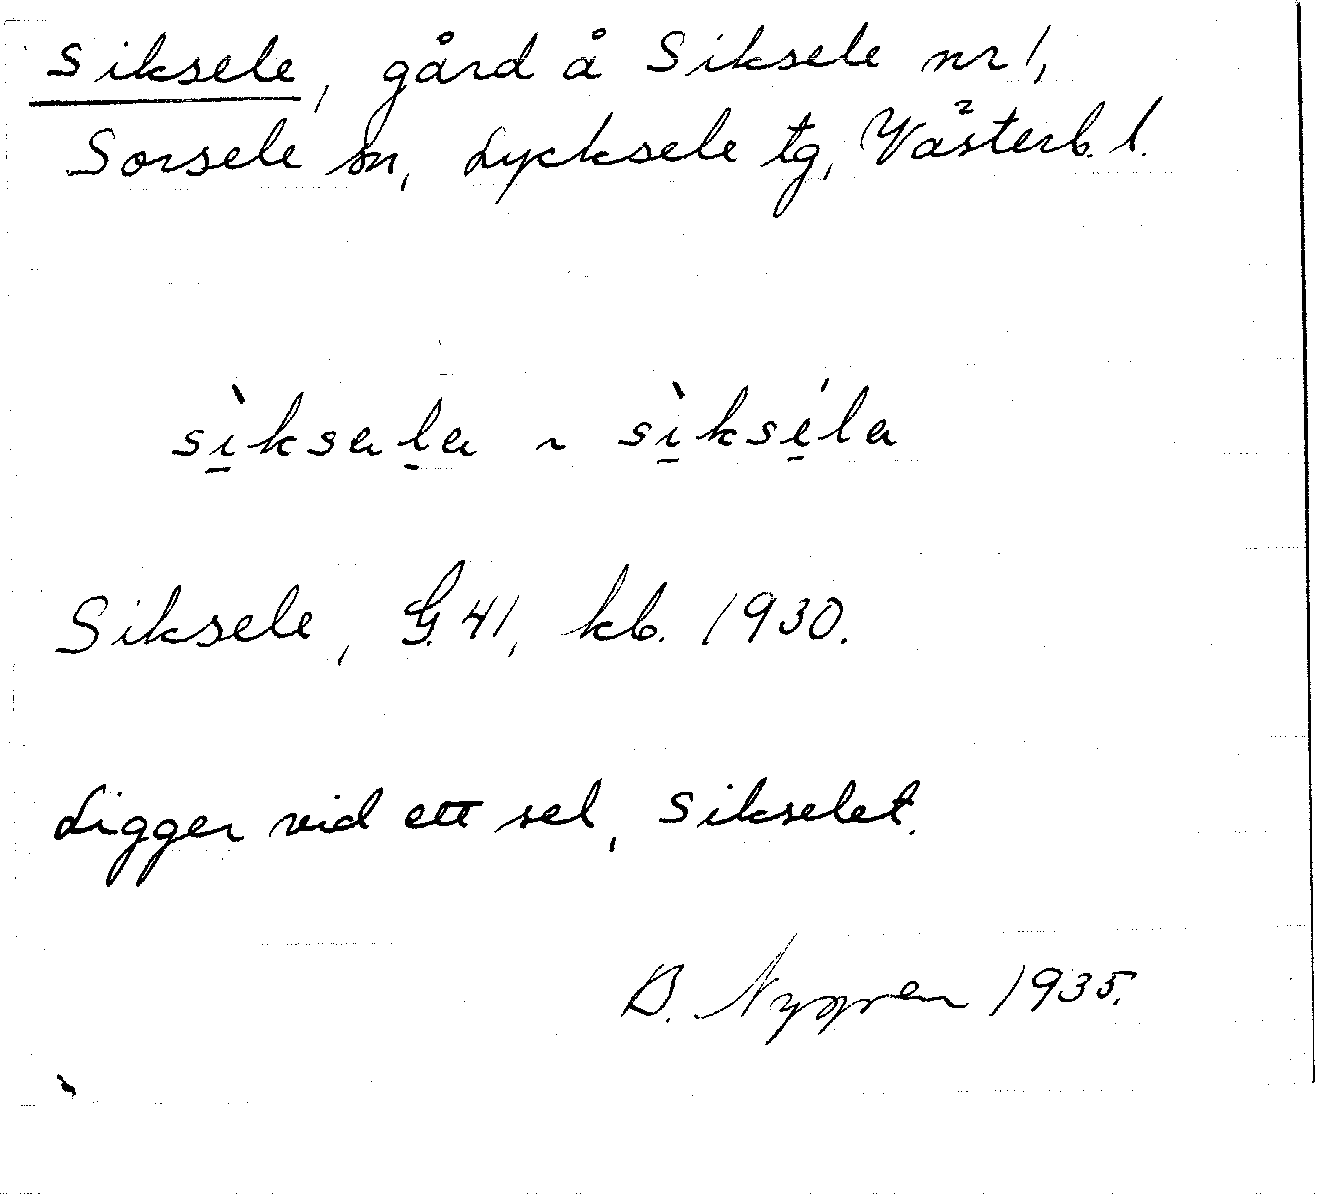 Siksele, gård å Siksele nr 1,
Sorsele sn, Lycksele tg, Västerb. l.
sì̱ksaḻa ~ sì̱ksé̱la
Siksele, G. 41, kb. 1930.
Ligger vid ett sel, Sikselet.
B. Nygren 1935.